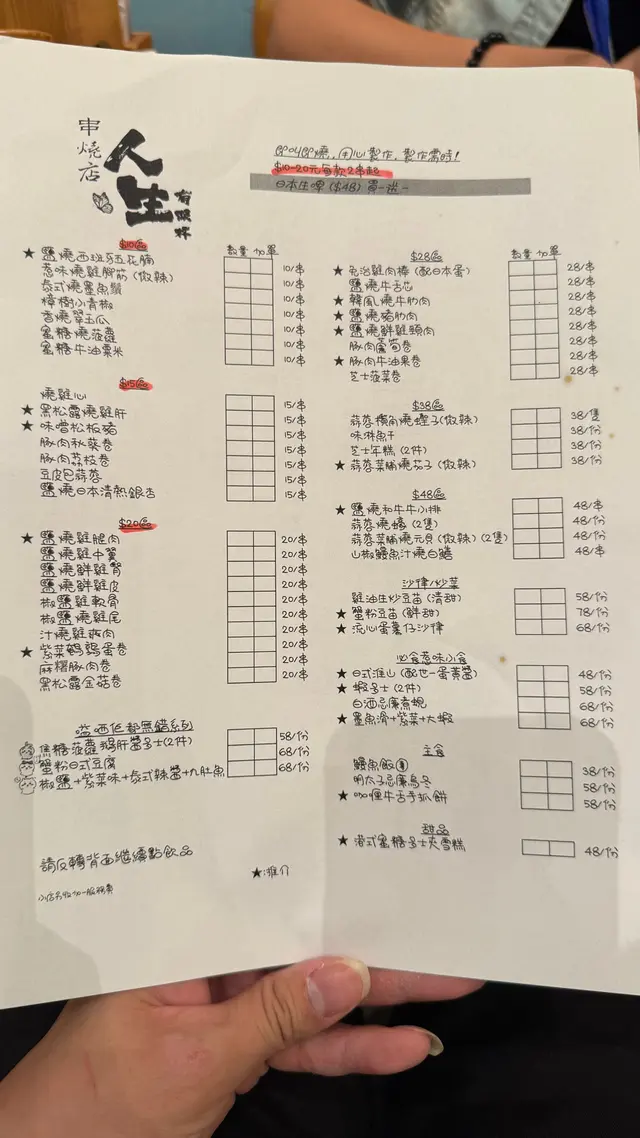 串燒店
人生
有限杯
即叫即燒, 用心製作, 製作需時!
$10-20元每款2串起
日本生啤 ($48) 買一送一
$10區
數量 加單
★ 鹽燒西班牙五花腩 10/串
惹味燒雞腳筋 (微辣) 10/串
泰式燒墨魚鬚 10/串
樟樹小青椒 10/串
香燒翠玉瓜 10/串
蜜糖燒菠蘿 10/串
蜜糖牛油粟米 10/串
$15區
燒雞心 15/串
★ 黑松露燒雞肝 15/串
★ 味噌松板豬 15/串
豚肉秋葵卷 15/串
豚肉荔枝卷 15/串
豆皮巴蒜蓉 15/串
鹽燒日本清熱銀杏 15/串
$20區
★ 鹽燒雞腿肉 20/串
鹽燒雞中翼 20/串
鹽燒鮮雞腎 20/串
鹽燒鮮雞皮 20/串
椒鹽雞軟骨 20/串
椒鹽燒雞尾 20/串
汁燒雞爽肉 20/串
★ 紫菜鵪鶉蛋卷 20/串
麻糬豚肉卷 20/串
黑松露金菇卷 20/串
嗌哂佢都無錯系列
焦糖菠蘿鵝肝醬多士(2件) 58/份
蟹粉日式豆腐 68/份
椒鹽+紫菜味+泰式辣醬+九肚魚 68/份
請反轉背面繼續點飲品
★:推介
小店另收加一服務費
$28區
數量 加單
★ 免治雞肉棒 (配日本蛋) 28/串
鹽燒牛舌芯 28/串
★ 韓風燒牛肋肉 28/串
★ 鹽燒豬肋肉 28/串
★ 鹽燒鮮雞頸肉 28/串
豚肉蘆筍卷 28/串
★ 豚肉牛油果卷 28/串
芝士菠菜卷 28/串
$38區
蒜蓉欖角燒蟶子(微辣) 38/隻
味淋魚干 38/份
芝士年糕 (2件) 38/份
★ 蒜蓉菜脯燒茄子 (微辣) 38/份
$48區
★ 鹽燒和牛牛小排 48/串
蒜蓉燒蠔 (2隻) 48/份
蒜蓉菜脯燒元貝 (微辣) (2隻) 48/份
山椒鰻魚汁燒白鱔 48/串
沙律/炒菜
雞油生炒豆苗 (清甜) 58/份
★ 蟹粉豆苗 (鮮甜) 78/份
★ 流心蛋薯仔沙律 68/份
必食惹味小食
★ 日式淮山 (配世一蛋黃醬) 48/份
★ 蝦多士 (2件) 58/份
白酒忌廉煮蜆 68/份
★ 墨魚滑+紫菜+大蝦 68/份
主食
鰻魚飯 38/份
明太子忌廉烏冬 58/份
★ 咖喱牛舌手抓餅 58/份
甜品
★ 港式蜜糖多士夾雪糕 48/份